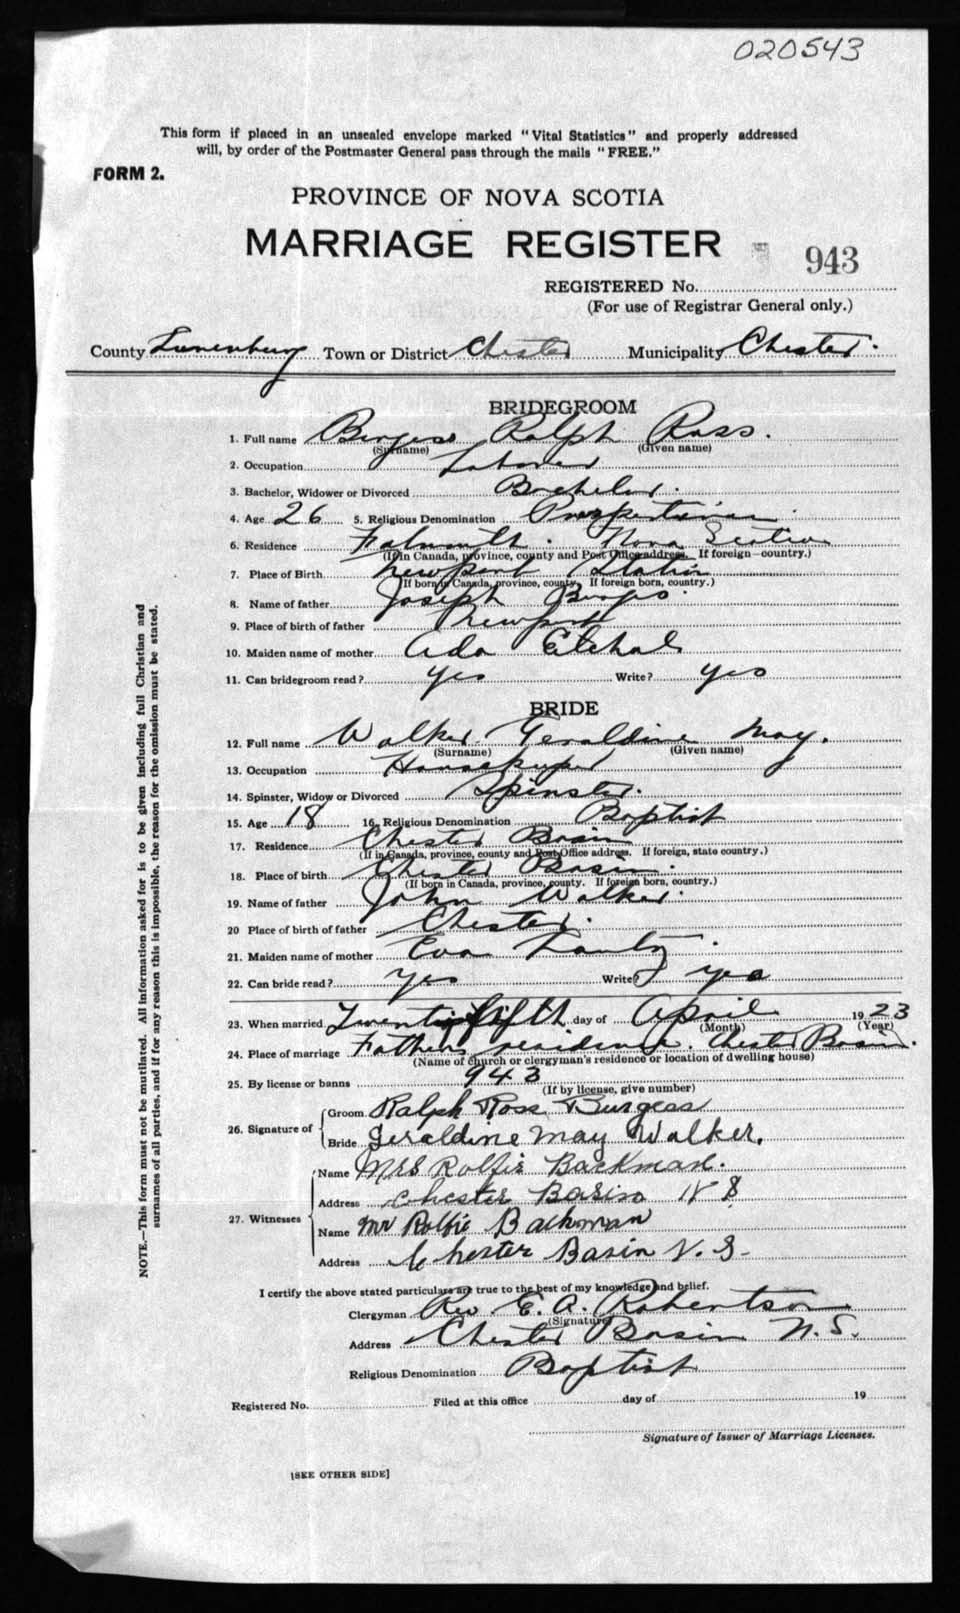 020543
This form if placed in an unsealed envelope marked "Vital Statistics" and properly addressed
will, by order of the Postmaster General pass through the mails "FREE."
FORM 2.
PROVINCE OF NOVA SCOTIA
MARRIAGE REGISTER
943
REGISTERED No.
(For use of Registrar General only.)
County Lunenburg Town or District Chester Municipality Chester.
BRIDEGROOM
1. Full name Burgess Ralph Ross.
(Surname) (Given name)
2. Occupation Laborer
3. Bachelor, Widower or Divorced Bachelor.
4. Age 26 5. Religious Denomination
6. Residence Falmouth. Nova Scotia
(If in Canada, province, county and Post Office address. If foreign—country.)
7. Place of Birth Newport Station
(If born in Canada, province, county. If foreign born, country.)
8. Name of father Joseph Burgess.
9. Place of birth of father Newport
10. Maiden name of mother Ada
11. Can bridegroom read? Yes Write? yes
BRIDE
12. Full name Walker Geraldine May.
(Surname) (Given name)
13. Occupation Housekeeper
14. Spinster, Widow or Divorced Spinster.
15. Age 18 16. Religious Denomination Baptist
17. Residence Chester Basin
(If in Canada, province, county and Post Office address. If foreign, state country.)
18. Place of birth Chester Basin
(If born in Canada, province, county. If foreign born, country.)
19. Name of father John Walker.
20 Place of birth of father Chester.
21. Maiden name of mother Eva
22. Can bride read? Yes Write? yes
23. When married Twenty fifth day of April 1923
(Month) (Year)
24. Place of marriage Fathers residence. Chester Basin.
(Name of church or clergyman's residence or location of dwelling house)
25. By license or banns 943
(If by license, give number)
26. Signature of Groom Ralph Ross Burgess
Bride Geraldine May Walker.
27. Witnesses Name Mrs Rolfie Backman.
Address Chester Basin N S
Name Mr Rolfie Backman
Address Chester Basin N. S.
I certify the above stated particulars are true to the best of my knowledge and belief.
Clergyman Rev. E. A. Robertson
(Signature)
Address Chester Basin N.S.
Religious Denomination Baptist
Registered No. Filed at this office day of 19
Signature of Issuer of Marriage Licenses.
[SEE OTHER SIDE]
NOTE.—This form must not be mutilated. All information asked for is to be given including full Christian and
surnames of all parties, and if for any reason this is impossible, the reason for the omission must be stated.